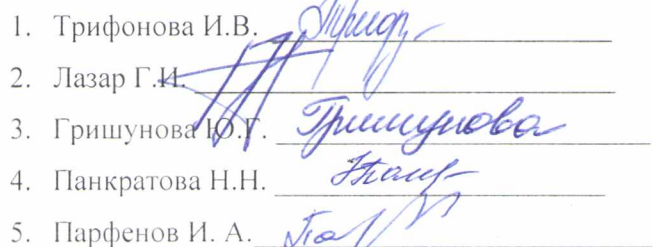 1. Трифонова И.В.
2. Лазар Г.И.
3. Гришунова Ю.Г. Гришунова
4. Панкратова Н.Н.
5. Парфенов И. А.